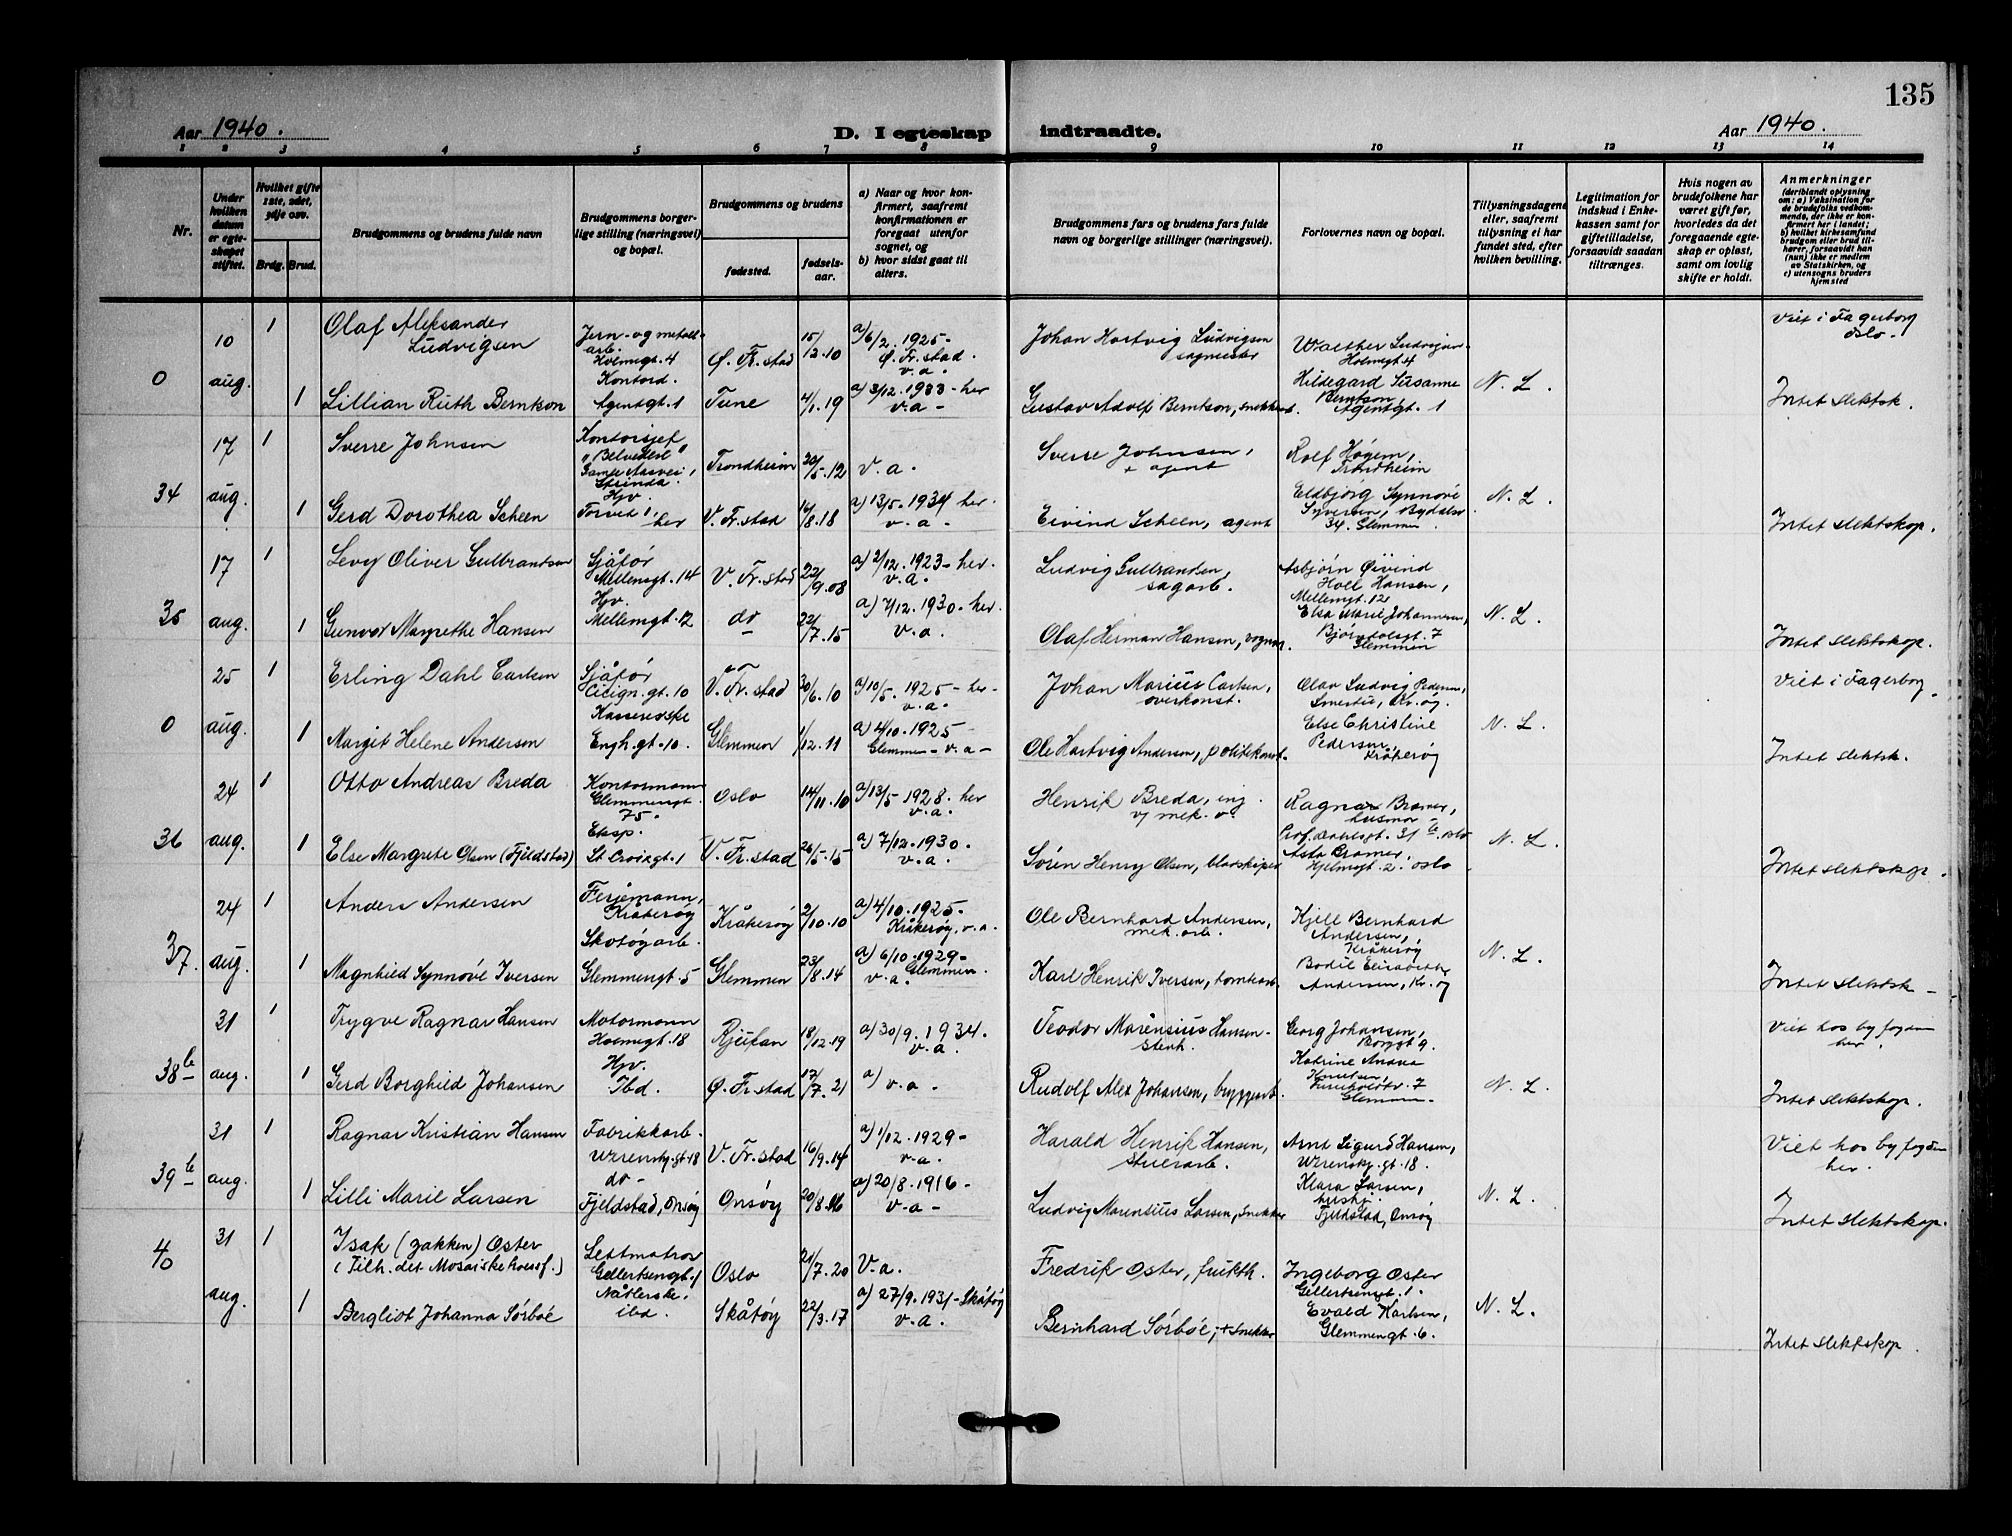 135
Aar 1940.
D. I egteskap indtraadte.
Aar 1940.
1 2 3 4 5 6 7 8 9 10 11 12 13 14
Nr.
Under hvilken datum er egteskapet stiftet.
Hvilket gifte 1ste, 2det, 3dje osv.
Brdg. Brud.
Brudgommens og brudens fulde navn
Brudgommens borgerlige stilling (næringsvei) og bopæl.
Brudgommens og brudens
fødested.
fødselsaar.
a) Naar og hvor konfirmert, saafremt konfirmationen er foregaat utenfor sognet, og
b) hvor sidst gaat til alters.
Brudgommens fars og brudens fars fulde navn og borgerlige stillinger (næringsvei).
Forlovernes navn og bopæl.
Tillysningsdagene eller, saafremt tillysning ei har fundet sted, efter hvilken bevilling.
Legitimation for indskud i Enkekassen samt for giftetilladelse, forsaavidt saadan tiltrænges.
Hvis nogen av brudefolkene har været gift før, hvorledes da det foregaaende egteskap er opløst, samt om lovlig skifte er holdt.
Anmerkninger
(deriblandt oplysning om: a) Vaksination for de brudefolks vedkommende, der ikke er konfirmert her i landet; b) hvilket kirkesamfund brudgom eller brud tilhører, forsaavidt han (hun) ikke er medlem av Statskirken, og c) utensogns bruders hjemsted
0
10 aug.
1
Olaf Aleksander Ludvigsen
Jern- og metallarb. Holmegt. 4
Ø. Fr.stad
15/12.10
a) 6/2. 1925 - Ø. Fr.stad. v.a.
Johan Hartvig Ludvigsen sagmester
Walther Ludvigsen Holmegt. 4
Viet i Fagerborg Oslo.
1
Lillian Ruth Berntson
Kontord. Agentgt. 1
Tune
4/1.19
a) 3/12. 1933 - her v.a -
Gustav Adolf Berntson, snekker.
Hildegard Susanne Berntson Agentgt. 1
N. L.
Intet slektsk.
34
17 aug.
1
Sverre Johnsen
Kontorsjef "Belvedere" Strinda.
Trondheim
30/5.12
v.a.
Sverre Johnsen, + agent
Rolf Høyem, Trondheim
1
Gerd Dorothea Scheen
Hjv. Torvet 1, her
V. Fr.stad
16/8.18
a) 13/5. 1934 her v.a.
Eivind Scheen, agent
Eldbjørg Synnøve Syversen, 34. Glemmen
N. L.
Intet slektskap.
35
17 aug.
1
Levy Oliver Gulbrandsen
Sjåfør Mellemgt. 14
V. Fr.stad
22/9.08
a) 2/12. 1923 - her. v.a.
Ludvig Gulbrandsen, sagarb.
Asbjørn Øivind Holl Hansen, Mellemgt. 12
1
Gunvor Margrethe Hansen
Hjv. Mellemgt. 12
do
22/7.15
a) 7/12. 1930 - her. v.a.
Olaf Herman Hansen, vognm.
Elsa Marie Johannesen, 7 Glemmen
N. L.
Intet slektskap.
0
25 aug.
1
Erling Dahl Carlsen
Sjåfør Cicign.gt. 10
V. Fr.stad
30/6.10
a) 10/5. 1925 - her - v.a.
Johan Marius Carlsen, overkonst.
Olav Ludvig Pedersen, Kr.øy.
Viet i Fagerborg.
1
Margit Helene Andersen
Kassererske Engh.gt. 10.
Glemmen
1/12.11
a) 4/10. 1925 - Glemmen - v.a -
Ole Hartvig Andersen, politikonst.
Else Christine Pedersen, Kråkerøy
N. L.
Intet slektsk.
36
24 aug.
1
Otto Andreas Breda
Kontormann Glemmengt. 75.
Oslo
14/11.10
a) 13/5. 1928. her v.a.
Henrik Breda, ing. v/ mek. v.
Ragnar Bramer, Prof. Dahlsgt. 31 b Oslo
1
Else Margrete Olsen (Fjeldstad)
Eksp. St. Croixgt. 1
V. Fr.stad
26/5.15
a) 7/12. 1930. v.a.
Søren Henry Olsen, blekkslager
Asta Bramer, Hjelmsgt. 2. Oslo
N. L.
Intet slektskap.
37.
24 aug.
1
Anders Andersen
Ferjemann, Kråkerøy
Kråkerøy
2/10.10
a) 4/10. 1925. Kråkerøy. v.a.
Ole Bernhard Andersen, mek. arb.
Kjell Bernhard Andersen, Kråkerøy
1
Magnhild Synnøve Iversen
Skotøyarb. Glemmengt. 5
Glemmen
23/8.14
a) 6/10. 1929 - Glemmen. v.a.
Karl Henrik Iversen, tomtearb.
Bodil Elisabeth Andersen, Kr.øy
N. L.
Intet slektsk -
38 b
31 aug.
1
Trygve Ragnar Hansen
Motormann Holmegt. 18
Rjukan
18/12.19
a) 30/9. 1934. v.a.
Teodor Marensius Hansen - sterk.
Georg Johansen, Borggt 9.
Viet hos byfogden her.
1
Gerd Borghild Johansen
Hjv. Ibd.
Ø. Fr.stad
17/7.21
a) v.a -
Rudolf Alex Johansen, bryggearb.
Katrine Andrea Knutsen, 7 Glemmen.
N. L.
Intet slektskap.
39 b
31 aug.
1
Ragnar Kristian Hansen
Fabrikkarb. Wrenskj.gt. 18
V. Fr.stad
16/9.14
a) 1/12. 1929 - v.a.
Harald Henrik Hansen, stuerarb.
Arne Sigurd Hansen, Wrenskj.gt. 18.
Viet hos byfogden her.
1
Lilli Marie Larsen
do - Fjeldstad, Onsøy
Onsøy
20/8.16
a) 20/8. 1916 - v.a -
Ludvig Marensius Larsen, snekker
Klara Larsen, Fjeldstad, Onsøy
N. L.
Intet slektskap.
40
31 aug.
1
Isak (Zakken) Oster (Tilh. det Mosaiske troessf.)
Lettmatros Gellertsengt. 1
Oslo
21/7.20
V.a.
Fredrik Oster, frukth.
Ingeborg Oster Gellertsengt. 1.
1
Bergliot Johanna Sørbøe
Nåtlerske, ibd.
Skåtøy
22/3.17
a) 27/9. 1931 - Skåtøy v.a.
Bernhard Sørbøe, + snekker
Evald Karlsen, Glemmengt. 6.
N. L.
Intet slektskap.